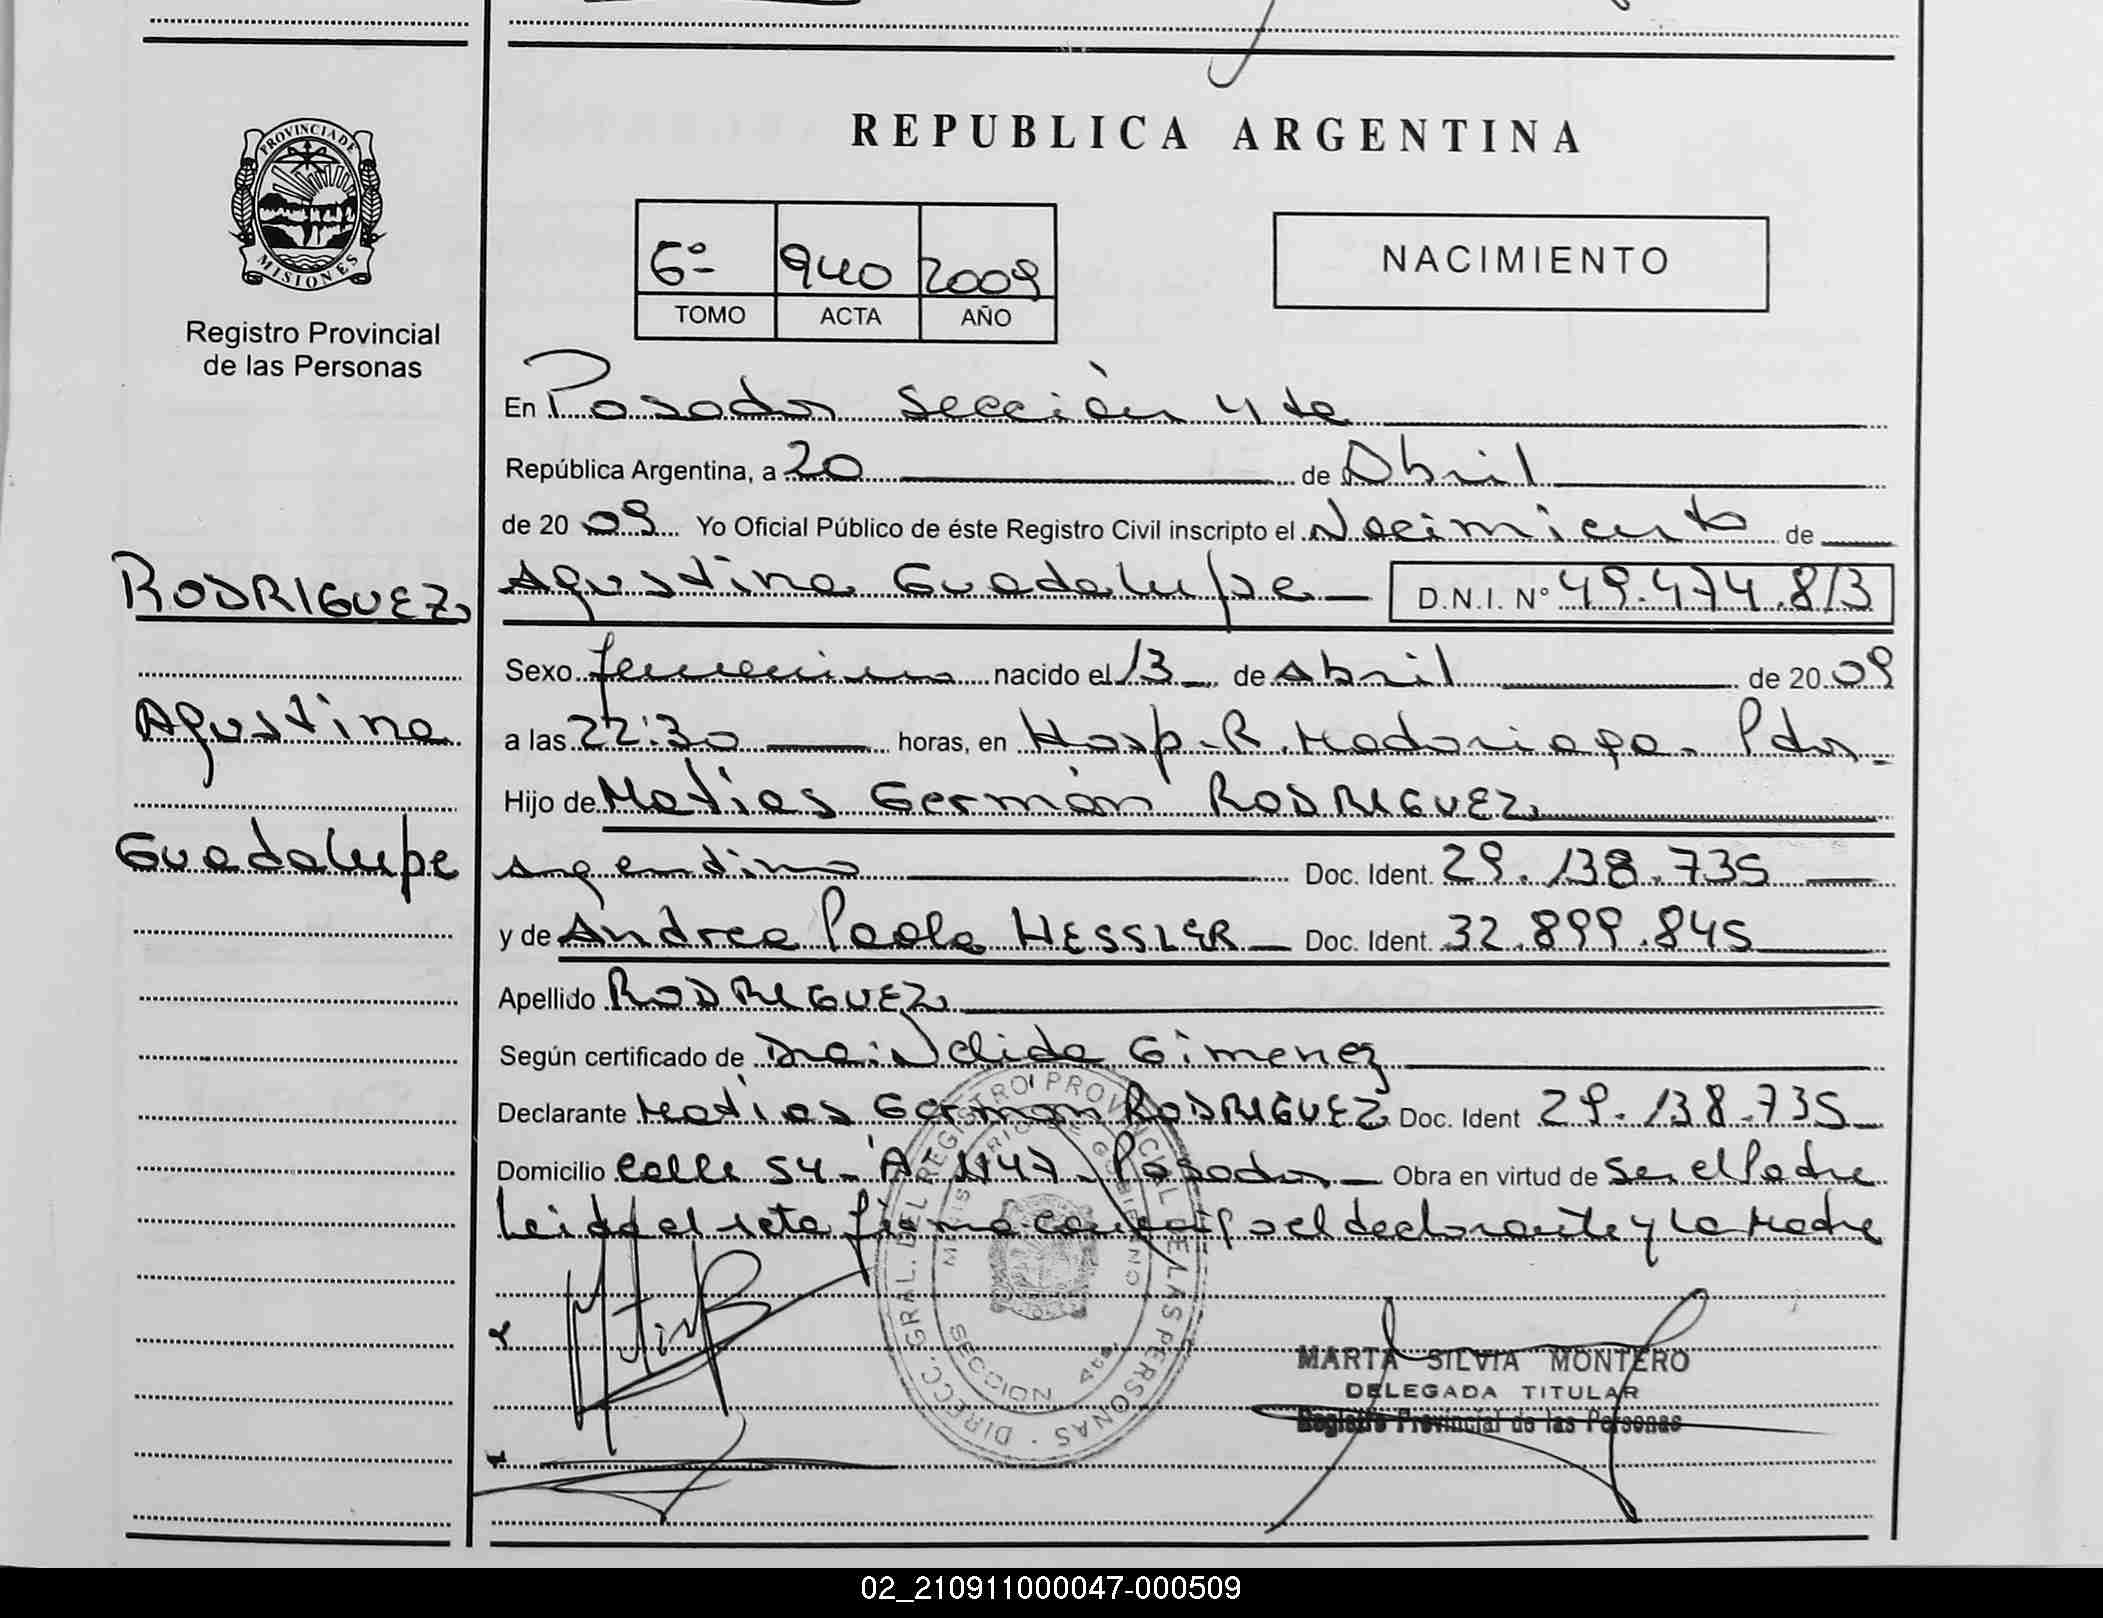 PROVINCIA DE
MISIONES
Registro Provincial
de las Personas
REPUBLICA ARGENTINA
6º 940 2009
TOMO ACTA AÑO
NACIMIENTO
En Posadas Sección 4 ta
República Argentina, a 20 de Abril
de 20 09 Yo Oficial Público de éste Registro Civil inscripto el Nacimiento de
RODRIGUEZ
Agustina
Guadalupe
Agustina Guadalupe D.N.I. Nº 49.474.813
Sexo femenino nacido el 13 de Abril de 20 09
a las 22:30 horas, en Hosp. R. Madariaga. Pdas
Hijo de Matias Germán RODRIGUEZ
argentino Doc. Ident. 29.138.735
y de Andrea Paola HESSLER Doc. Ident. 32.899.845
Apellido RODRIGUEZ
Según certificado de Dra: Nelida Gimenez
Declarante Matias Germán RODRIGUEZ Doc. Ident 29.138.735
Domicilio Calle 54 - A 1147 Posadas Obra en virtud de Ser el Padre
Leida el acta firma conmigo el declarante y la Madre
DIRECC. GRAL. DEL REGISTRO PROVINCIAL DE LAS PERSONAS
MINISTERIO DE GOBIERNO
SECCION 4ta.
MARTA SILVIA MONTERO
DELEGADA TITULAR
Registro Provincial de las Personas
02_210911000047-000509